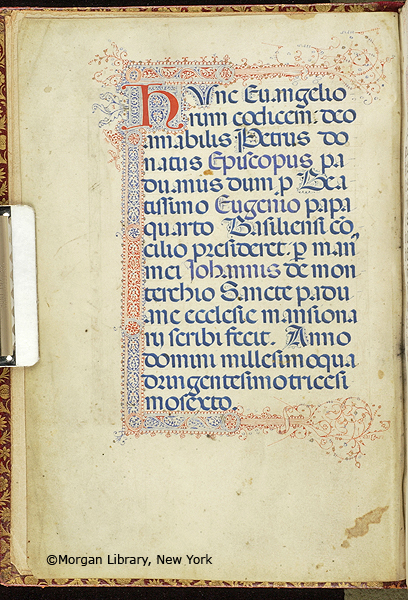 HVnc Euangelio
rum codicem. deo
amabilis Petrus do
natus Episcopus pa
duanus dum. ꝑ Bea
tissimo Eugenio papa
quarto Basiliensi cō
cilio presideret. ꝑ man
mei Johannis de mon
terchio Sancte padu
ane ecclesie mansiona
rii scribi fecit. Anno
domini millesimoqua
dringentesimotricesi
mosexto.
©Morgan Library, New York